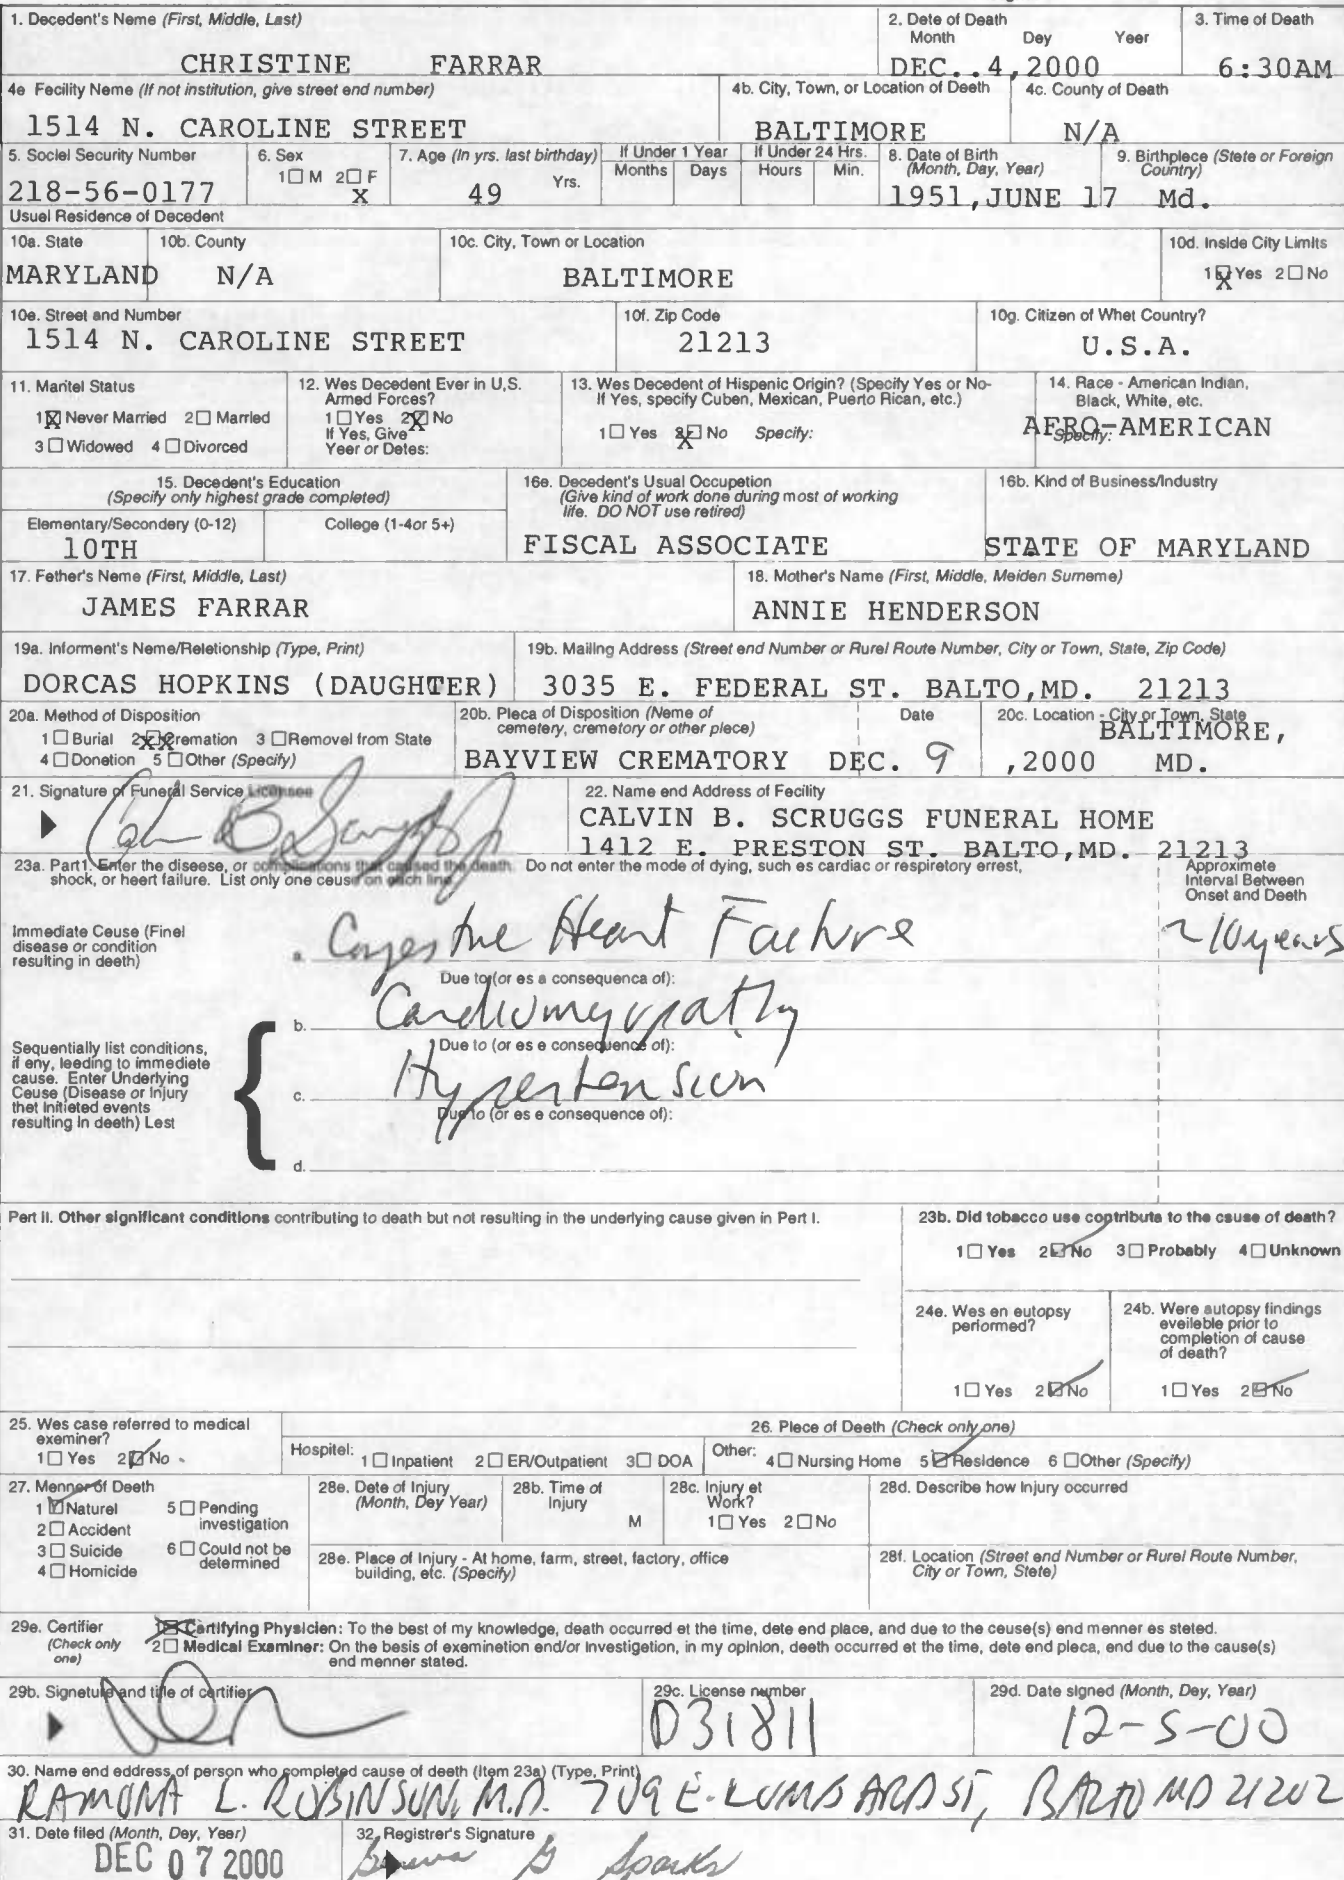 1. Decedent's Name (First, Middle, Last)
CHRISTINE FARRAR
2. Dete of Death
Month Dey Yeer
DEC..4,2000
3. Time of Death
6:30AM
4e Fecility Name (If not institution, give street end number)
1514 N. CAROLINE STREET
4b. City, Town, or Location of Deeth
BALTIMORE
4c. County of Death
N/A
5. Sociel Security Number
218-56-0177
6. Sex
1☐ M 2☐ F
X
7. Age (In yrs. last birthday)
49 Yrs.
If Under 1 Year
Months Days
If Under 24 Hrs.
Hours Min.
8. Date of Birth
(Month, Day, Year)
1951,JUNE 17
9. Birthplece (Stete or Foreign
Country)
Md.
Usuel Residence of Decedent
10a. State
MARYLAND
10b. County
N/A
10c. City, Town or Location
BALTIMORE
10d. Inside City Limits
1☒Yes 2☐No
10e. Street and Number
1514 N. CAROLINE STREET
10f. Zip Code
21213
10g. Citizen of Whet Country?
U.S.A.
11. Maritel Status
1☒Never Married 2☐ Married
3☐Widowed 4☐Divorced
12. Wes Decedent Ever in U,S.
Armed Forces?
1☐Yes 2☒No
If Yes, Give
Yeer or Detes:
13. Wes Decedent of Hispenic Origin? (Specify Yes or No-
If Yes, specify Cuben, Mexican, Puerto Rican, etc.)
1☐Yes 2☒No Specify:
14. Race - American Indian,
Black, White, etc.
Specify:
AFRO-AMERICAN
15. Decedent's Education
(Specify only highest grade completed)
Elementary/Secondery (0-12)
10TH
College (1-4or 5+)
16e. Decedent's Usual Occupetion
(Give kind of work done during most of working
life. DO NOT use retired)
FISCAL ASSOCIATE
16b. Kind of Business/Industry
STATE OF MARYLAND
17. Father's Name (First, Middle, Last)
JAMES FARRAR
18. Mother's Name (First, Middle, Meiden Surneme)
ANNIE HENDERSON
19a. Informent's Name/Reletionship (Type, Print)
DORCAS HOPKINS (DAUGHTER)
19b. Mailing Address (Street end Number or Rurel Route Number, City or Town, State, Zip Code)
3035 E. FEDERAL ST. BALTO,MD. 21213
20a. Method of Disposition
1☐Burial 2☒Cremation 3☐Removal from State
4☐Donetion 5☐Other (Specify)
20b. Pleca of Disposition (Neme of
cemetery, cremetory or other plece)
BAYVIEW CREMATORY
Date
DEC. 9 ,2000
20c. Location - City or Town, State
BALTIMORE,
MD.
21. Signature of Funeral Service Licensee
22. Name end Address of Fecility
CALVIN B. SCRUGGS FUNERAL HOME
1412 E. PRESTON ST. BALTO,MD. 21213
23a. Part1. Enter the diseese, or complications that caused the death. Do not enter the mode of dying, such es cardiac or respiretory errest,
shock, or heert failure. List only one ceuse on each line.
Approximete
Interval Between
Onset and Deeth
Immediate Ceuse (Finel
disease or condition
resulting in death)
a. Congestive Heart Failure
~10years
Due to (or es a consequenca of):
b. Cardiomyopathy
Due to (or es e consequence of):
c. Hypertension
Due to (or es e consequence of):
d.
Sequentially list conditions,
if eny, leeding to immediete
cause. Enter Underlying
Ceuse (Disease or Injury
thet initieted events
resulting in deeth) Lest
Part II. Other significant conditions contributing to death but not resulting in the underlying cause given in Part I.
23b. Did tobacco use contributa to the cause of death?
1☐Yes 2☑No 3☐Probably 4☐Unknown
24e. Wes en eutopsy
performed?
1☐Yes 2☑No
24b. Were autopsy findings
eveileble prior to
completion of cause
of death?
1☐Yes 2☑No
25. Wes case referred to medical
exeminer?
1☐Yes 2☑No
26. Plece of Death (Check only one)
Hospitel: 1☐Inpatient 2☐ER/Outpatient 3☐DOA
Other: 4☐Nursing Home 5☑Residence 6☐Other (Specify)
27. Menner of Deeth
1☑Naturel 5☐Pending
investigation
2☐Accident
3☐Suicide 6☐Could not be
determined
4☐Homicide
28e. Dete of Injury
(Month, Dey Year)
28b. Time of
Injury
M
28c. Injury et
Work?
1☐Yes 2☐No
28d. Describe how Injury occurred
28e. Place of Injury - At home, farm, street, factory, office
building, etc. (Specify)
28f. Location (Street end Number or Rurel Route Number,
City or Town, Stete)
29e. Certifier
(Check only
one)
1☒Certifying Physicien: To the best of my knowledge, death occurred et the time, dete end place, and due to the ceuse(s) end menner es steted.
2☐Medical Exeminer: On the besis of exeminetion end/or investigetion, in my opinion, deeth occurred et the time, dete end pleca, end due to the cause(s)
end menner stated.
29b. Signeture and title of certifier
29c. License number
D31811
29d. Date signed (Month, Dey, Year)
12-5-00
30. Name end eddress of person who completed cause of death (Item 23a) (Type, Print)
RAMONA L. ROBINSON, M.D. 709 E. LOMBARD ST, BALTO MD 21202
31. Dete filed (Month, Dey, Yeer)
DEC 07 2000
32. Registrer's Signature
Sparks